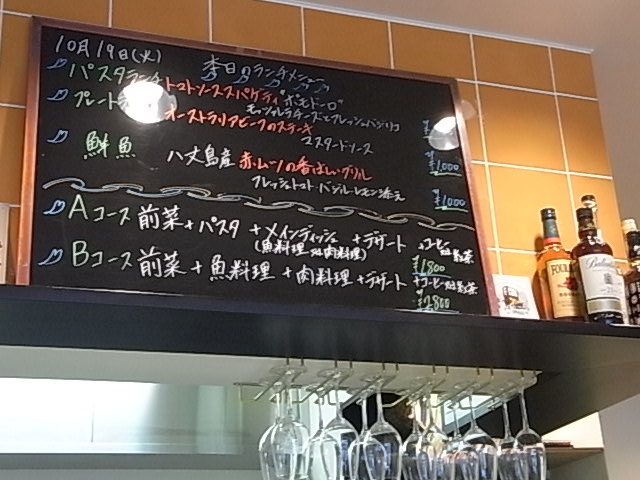 10月19日(火)
本日のランチメニュー
パスタランチ トマトソーススパゲティ ポモドーロ
モッツァレラチーズとフレッシュバジリコ
プレート
オーストラリアビーフのステーキ
マスタードソース
¥1,000
鮮魚
八丈島産 赤ムツの香ばしいグリル
フレッシュトマト・バジル・レモン添え
¥1,000
Aコース 前菜+パスタ+メインディッシュ+デザート+コーヒー又は紅茶
(魚料理 又は 肉料理)
¥1,800
Bコース 前菜+魚料理+肉料理+デザート+コーヒー又は紅茶
¥2,800
FOUR
Ballantine's